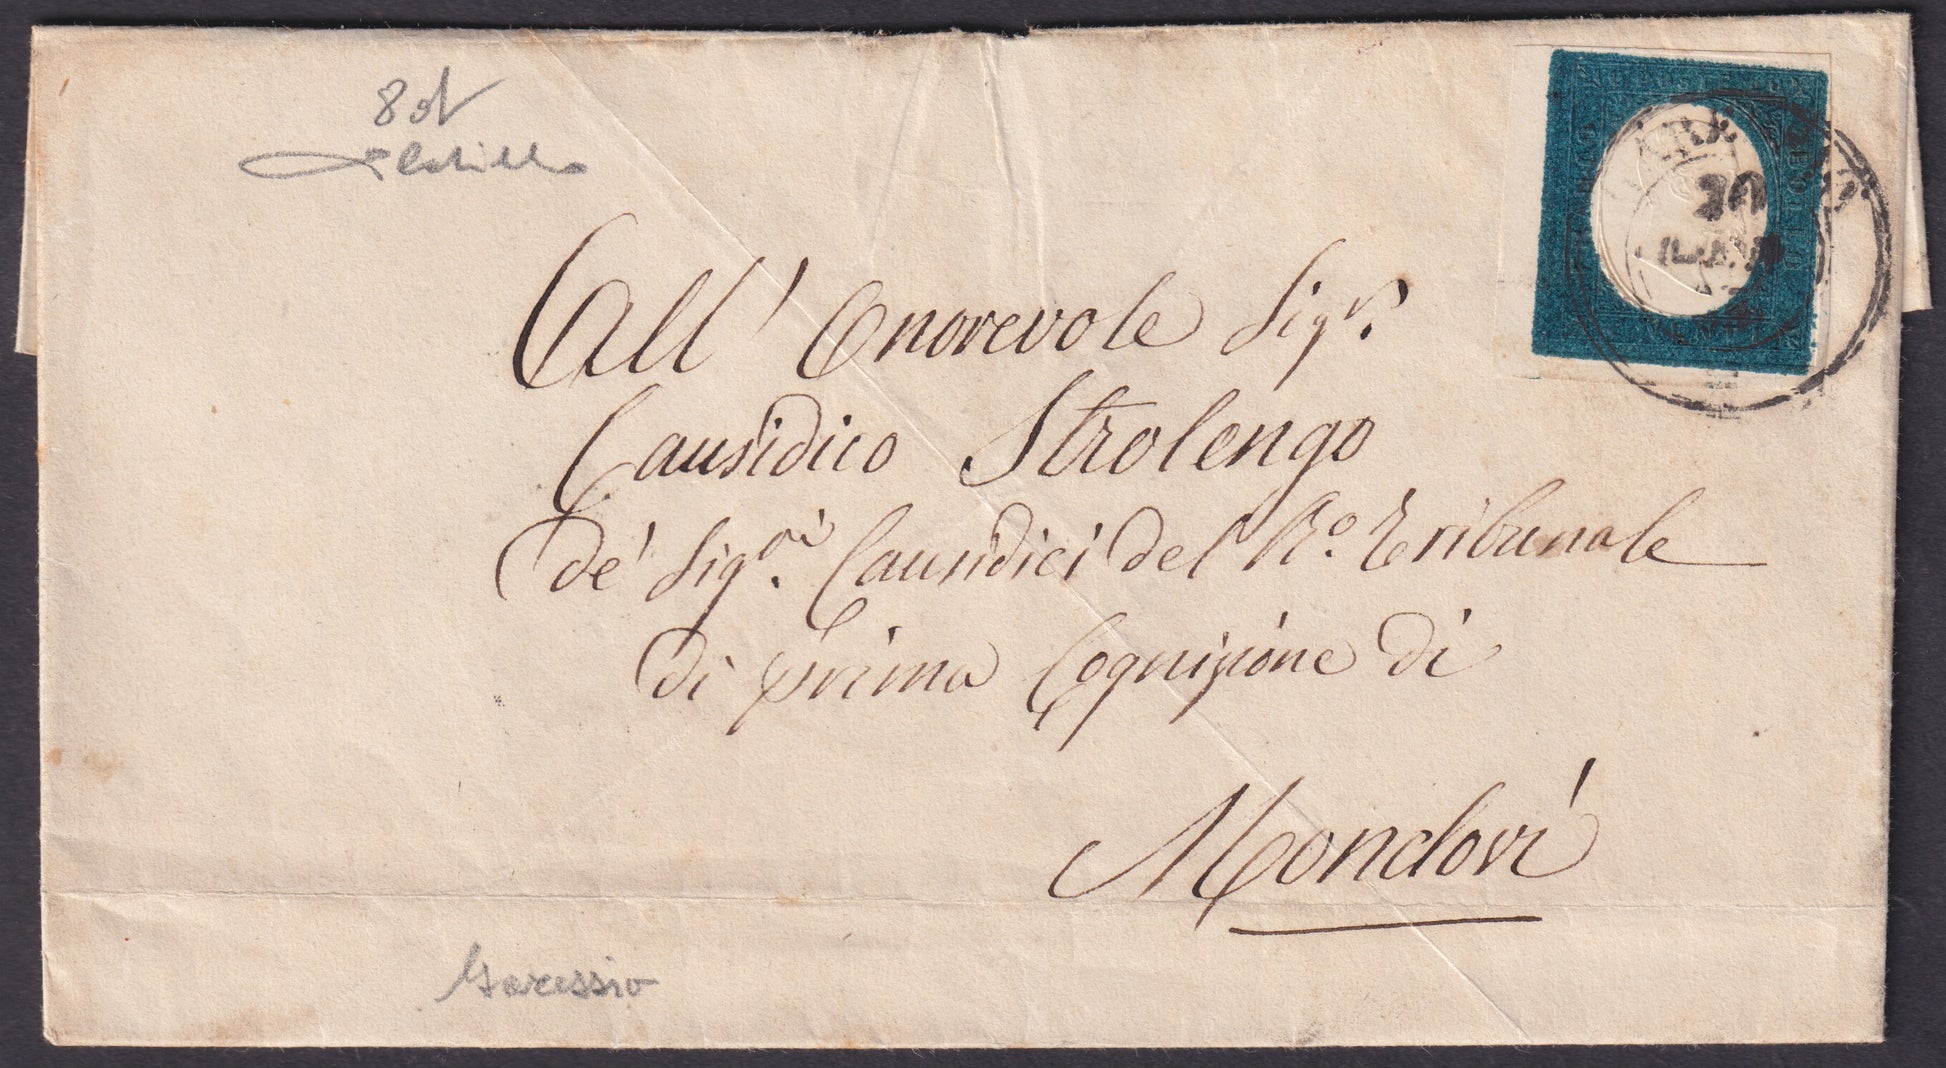 8
All' Onorevole Sigr.
Causidico Strolengo
de' Sigri. Causidici del Ro. Tribunale
di prima Cognizione di
Mondovì
Garessio
FRANCO
C. VENTI
20